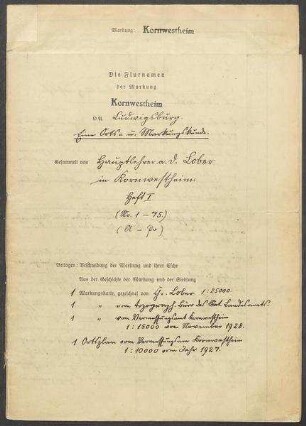 Markung: Kornwestheim
Die Flurnamen
der Markung
Kornwestheim
O/A Ludwigsburg.
Eine Orts- u. Markungskunde.
Gesammelt von Hauptlehrer a. D. Lober
in Kornwestheim.
Heft I
(Nr. 1 - 75.)
(A - P.)
Beilagen: Beschreibung der Markung und ihrer Esche
Aus der Geschichte der Markung und der Siedlung
1 Markungskarte, gezeichnet von G. Lober 1:25000.
1 " vom topograph. Büro des Stat. Landesamts
1 " vom Vermessungsamt Kornwestheim
1:15000 vom November 1928.
1 Ortsplan vom Vermessungsam Kornwestheim
1:10000 vom Jahr 1927.